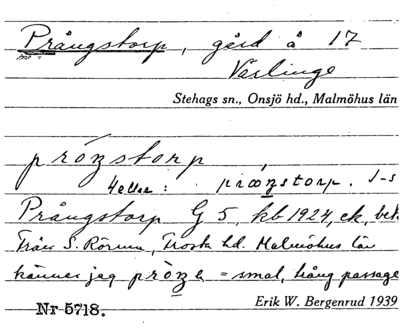 Prångstorp, gård å 17
Varlinge
Stehags sn., Onsjö hd., Malmöhus län
próŋstorp
eller: prooŋstorp. J-s
Prångstorp G 5, kb 1924, ek, bet
Från S. Rörum, Frosta hd. Malmöhus län
känner jag pròŋe = smal, trång passage
Nr 5718.
Erik W. Bergenrud 1939